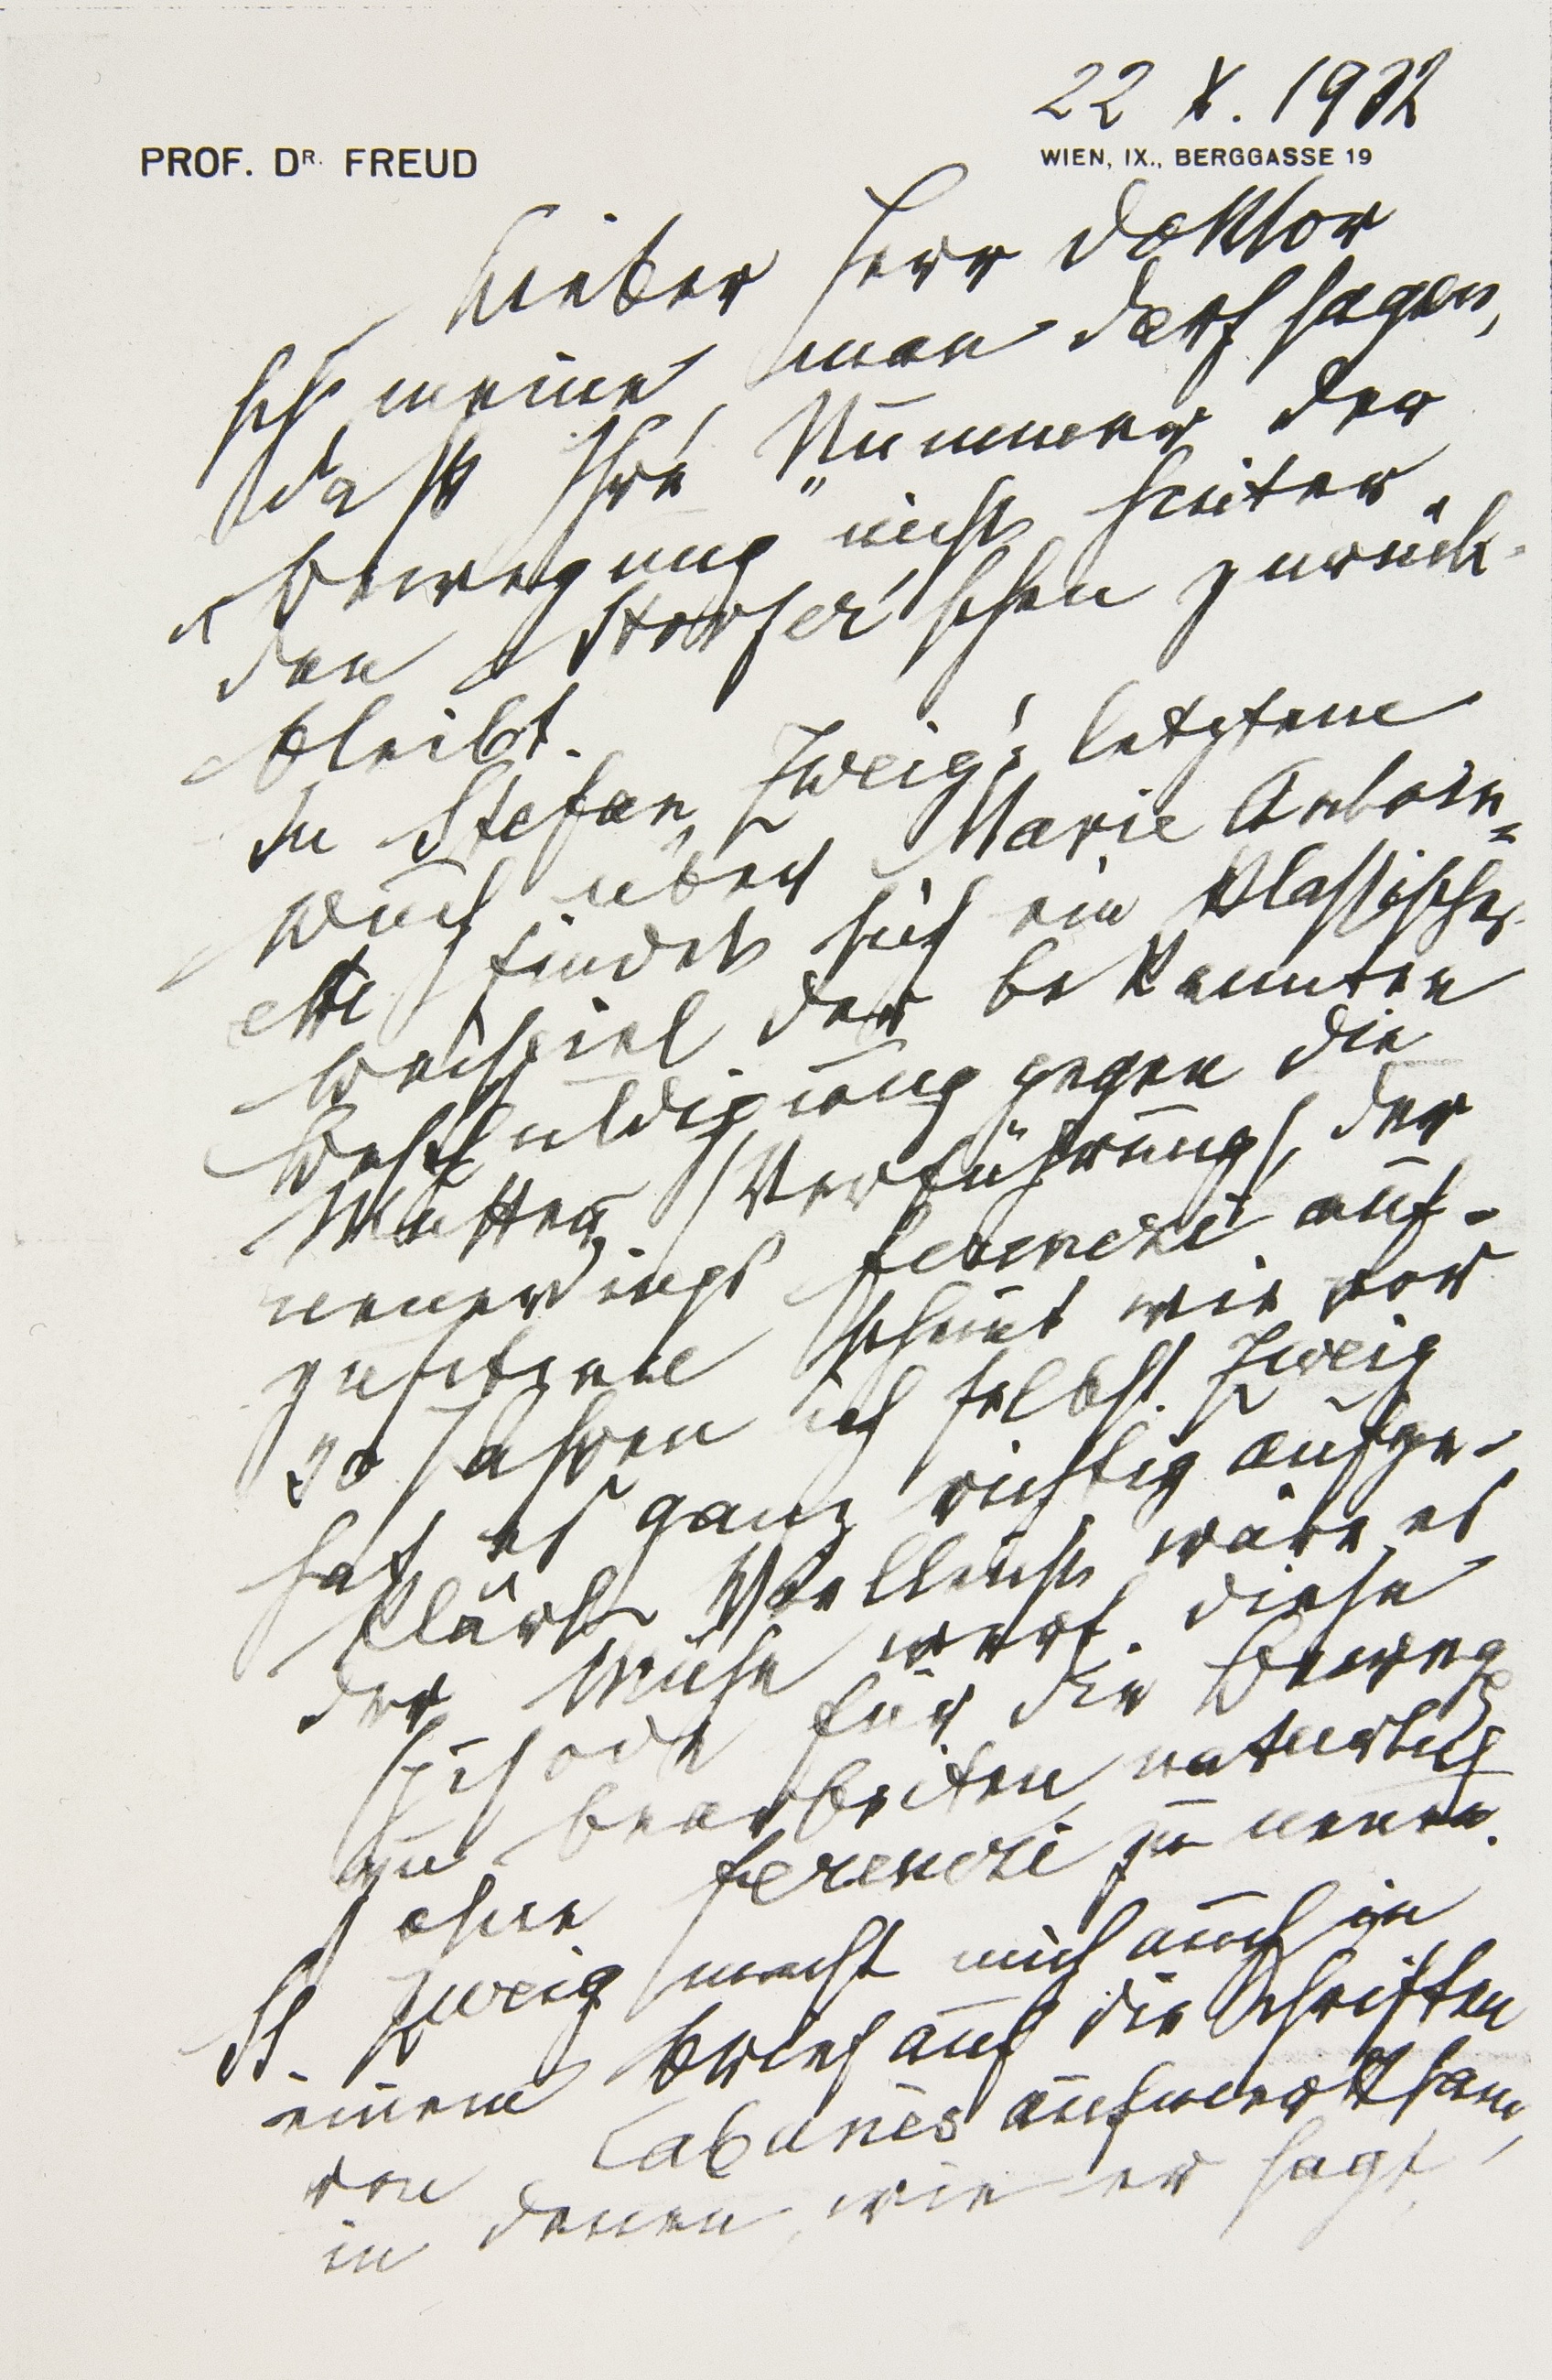 22 X. 1932
PROF. DR. FREUD
WIEN, IX., BERGGASSE 19
Lieber Herr Doktor
Ich meine, man darf sagen,
daß Ihre Nummer der
„Bewegung" nicht hinter
den Storfer'schen zurück-
bleibt.
In Stefan Zweig's letztem
Buch über Marie Antoin=
ette findet sich ein klassisches
Beispiel der bekannten
Beschuldigung gegen die
Mutter (Verführung), der
neuerdings Ferenczi auf-
zusitzen scheint wie vor
30 Jahren ich selbst. Zweig
hat es ganz richtig aufge-
klärt. Vielleicht wäre es
der Mühe wert, diese
Episode für die Beweg
zu bearbeiten, natürlich
ohne Ferenczi zu nennen.
St. Zweig macht mich auch in
einem Brief auf die Schriften
von Cabanès aufmerksam,
in denen, wie er sagt,